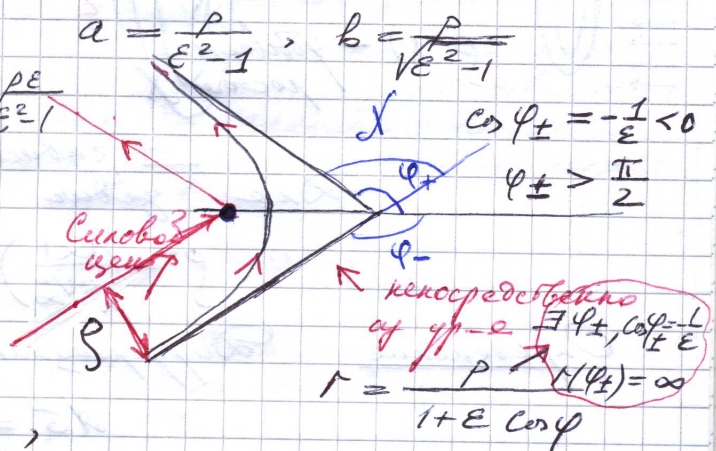 a = p/(ε²-1), b = p/√(ε²-1)
pε/(ε²-1)
χ
cos φ± = -1/ε < 0
φ+
φ± > π/2
Силовой
центр
φ-
непосредственно
из ур-я
∃ φ±, cosφ± = -1/ε
ρ
r = p/(1+ε cosφ)
r(φ±) = ∞
,